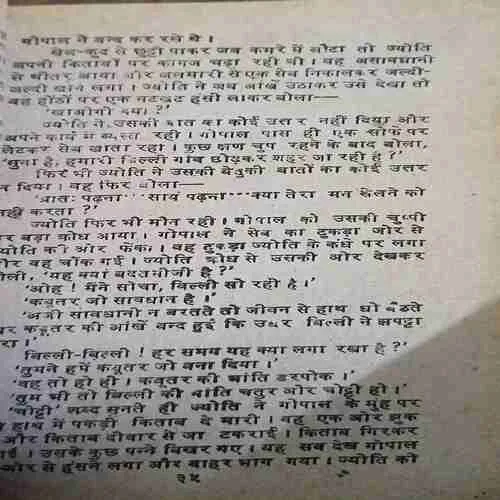 गोपाल ने बन्द कर रखे थे।
खेल-कूद से छुट्टी पाकर जब कमरे में लौटा तो ज्योति
अपनी किताबों पर कागज चढ़ा रही थी। वह असावधानी
से भीतर आया और अलमारी से एक सेब निकालकर जल्दी-
जल्दी खाने लगा। ज्योति ने जब आंखें उठाकर उसे देखा तो
वह होंठों पर एक नटखट हंसी लाकर बोला—
'खाओगी क्या?'
ज्योति ने उसकी बात का कोई उत्तर नहीं दिया और
अपने कार्य में व्यस्त रही। गोपाल पास ही एक सोफे पर
लेटकर सेब खाता रहा। कुछ क्षण चुप रहने के बाद बोला,
'सुना है, हमारी बिल्ली गांव छोड़कर शहर जा रही है?'
फिर भी ज्योति ने उसकी बेतुकी बातों का कोई उत्तर
न दिया। वह फिर बोला—
'प्रातः पढ़ना सायं पढ़ना क्या तेरा मन खेलने को
नहीं करता?'
ज्योति फिर भी मौन रही। गोपाल को उसकी चुप्पी
पर बड़ा क्रोध आया। गोपाल ने सेब का टुकड़ा जोर से
ज्योति की ओर फेंका। वह टुकड़ा ज्योति के कंधे पर लगा
और वह चौंक गई। ज्योति क्रोध से उसकी ओर देखकर
बोली, 'यह क्या बदतमीजी है?'
'ओह! मैंने सोचा, बिल्ली सो रही है।'
'कबूतर जो सावधान है।'
'अजी सावधानी न बरतते तो जीवन से हाथ धो बैठते
पर कबूतर की आंखें बन्द हुई कि उधर बिल्ली ने झपट्टा
मारा।'
बिल्ली-बिल्ली! हर समय यह क्या लगा रखा है?'
'तुमने हमें कबूतर जो बना दिया।'
'वह तो हो ही। कबूतर की भांति डरपोक।'
'तुम भी तो बिल्ली की भांति चतुर और चोट्टी हो।'
'चोट्टी' शब्द सुनते ही ज्योति ने गोपाल के मुंह पर
हाथ में पकड़ी किताब दे मारी। वह एक ओर झुक
और किताब दीवार से जा टकराई। किताब गिरकर
उसके कुछ पन्ने बिखर गए। यह सब देख गोपाल
जोर से हंसने लगा और बाहर भाग गया। ज्योति को
२५